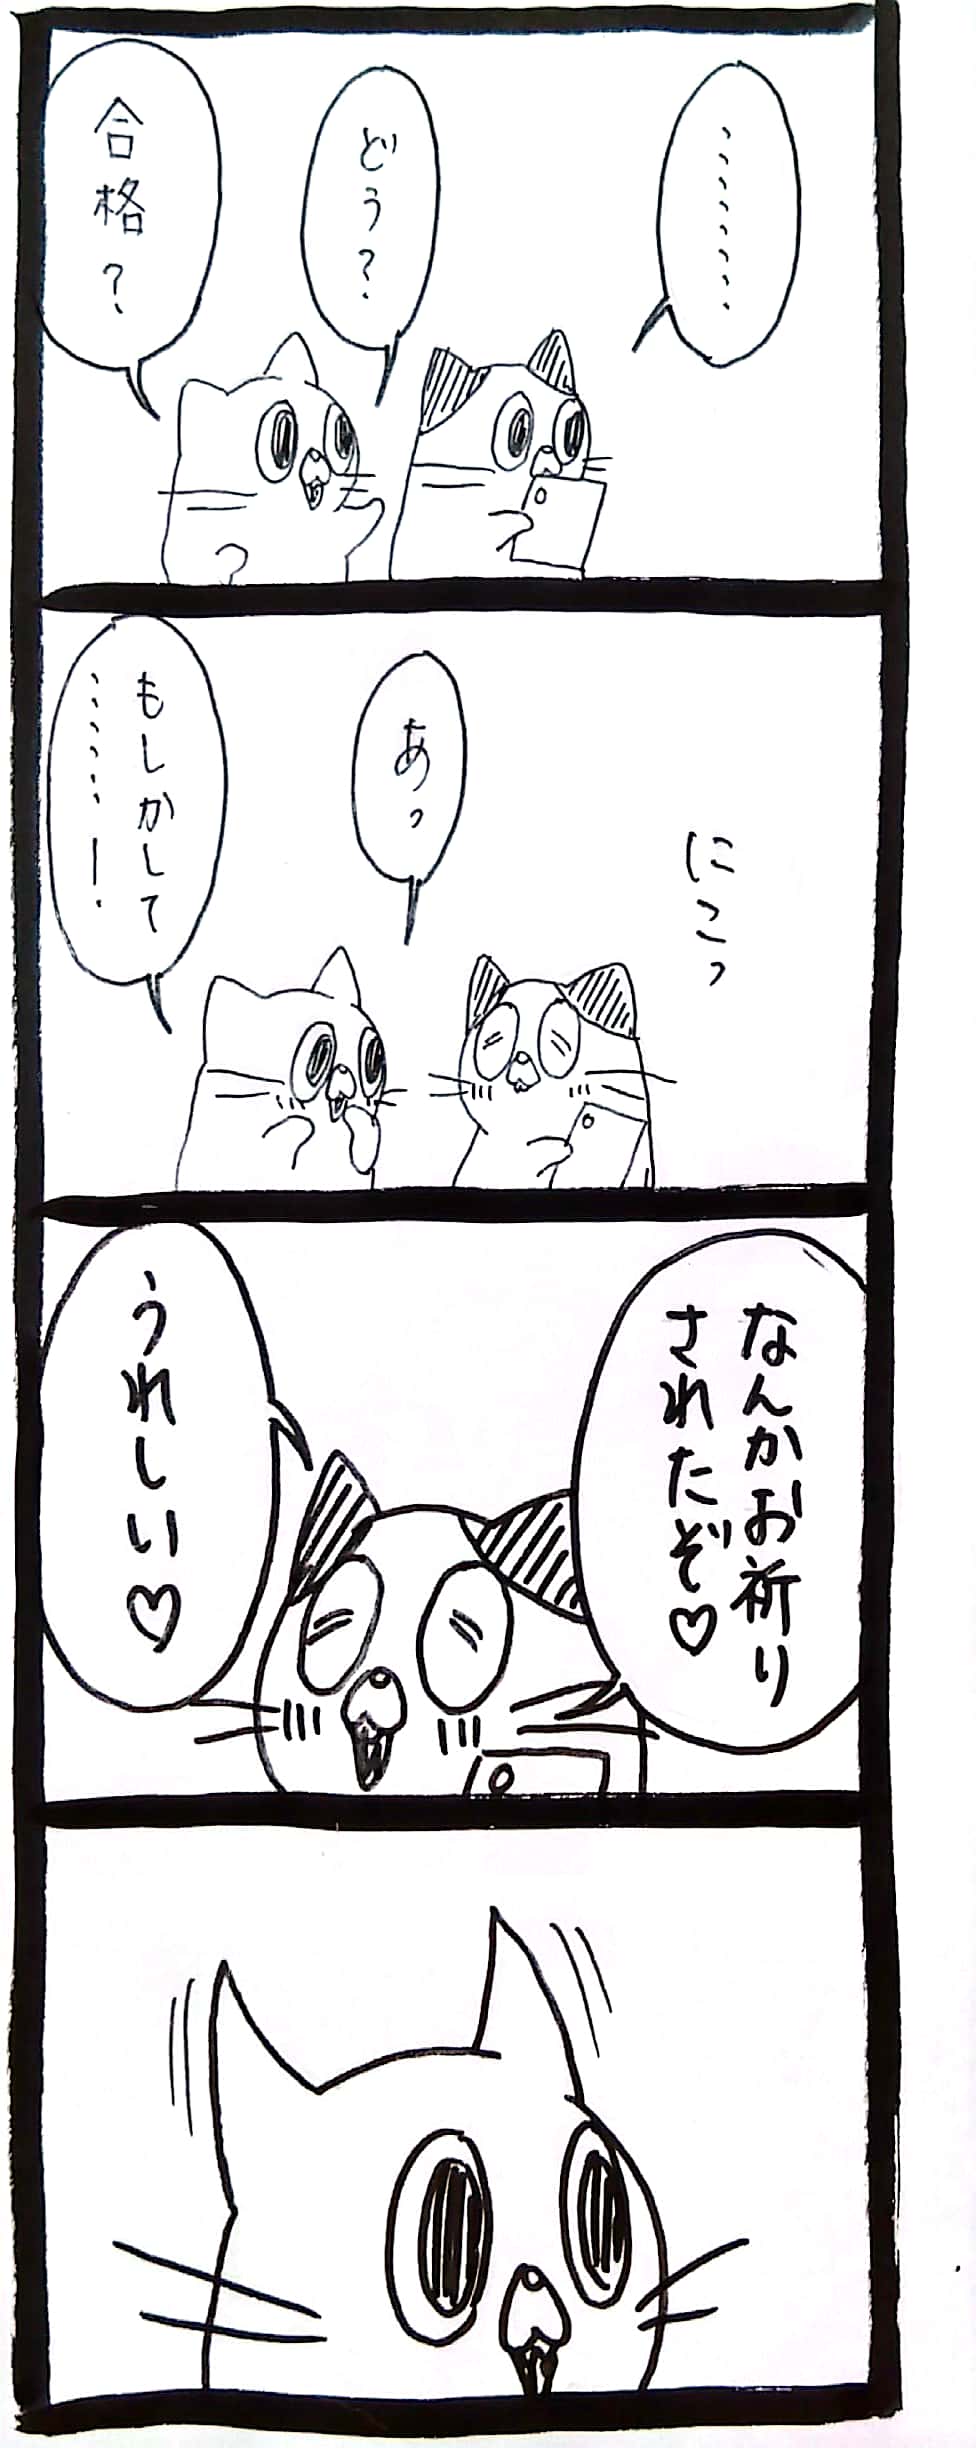 ………
どう？
合格？
にこっ
あっ
もしかして
………！
なんかお祈り
されたぞ♡
うれしい♡